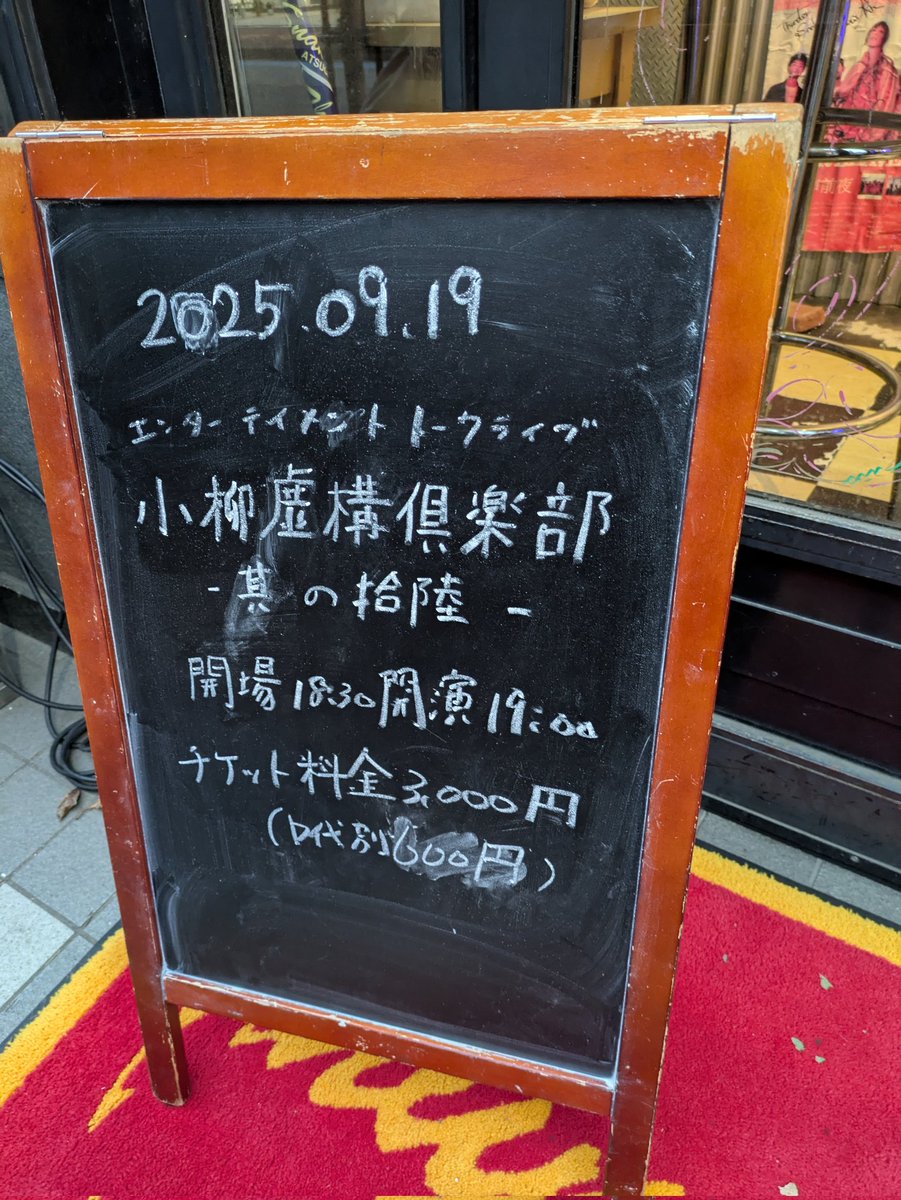 2025.09.19
エンターテイメント トークライブ
小柳虚構倶楽部
- 其の拾陸 -
開場 18:30 開演 19:00
チケット料金 3,000円
(D代別 600円)
ATSU
前夜